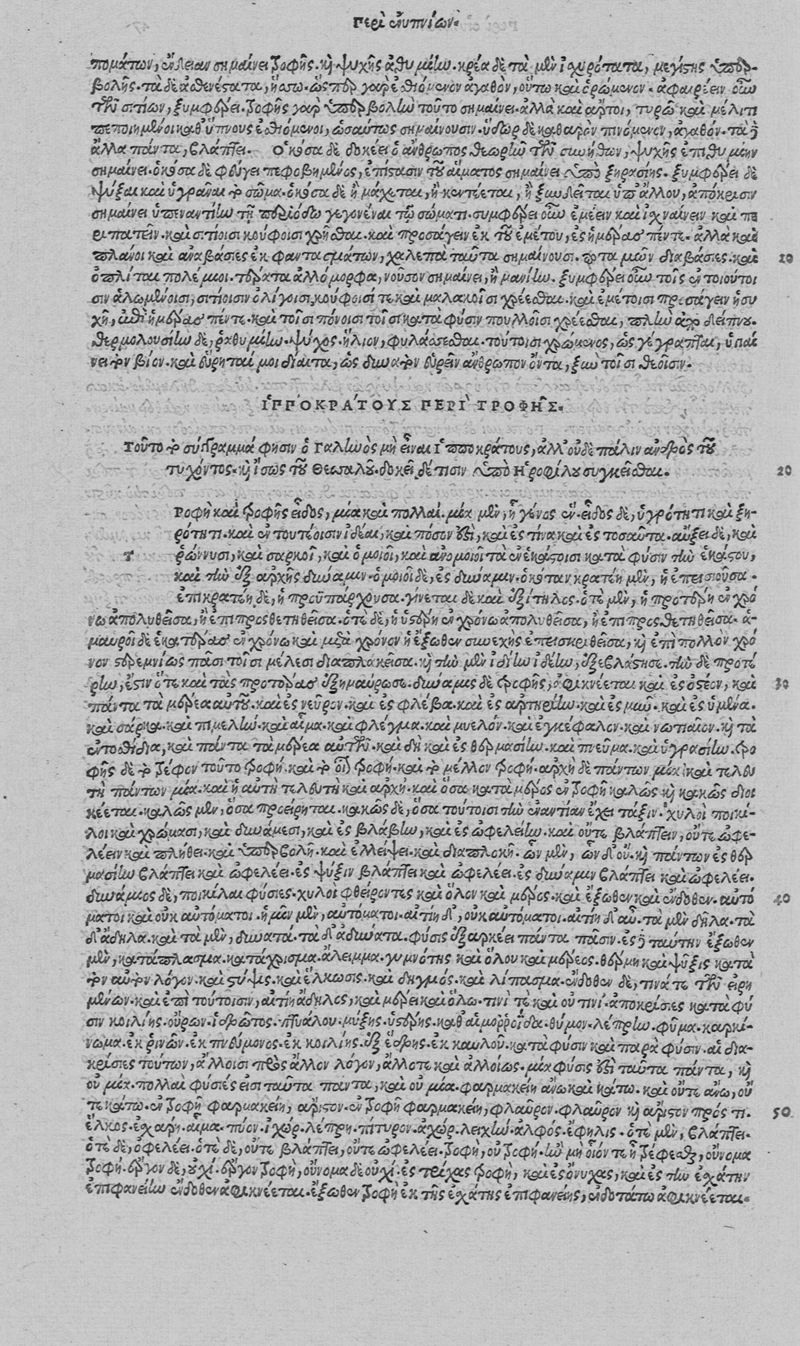 Περὶ ἐνυπνίων.
πομάτων, ἔνδειαν σημαίνει τροφῆς. καὶ ψυχῆς ἀθυμίην. κρέα δὲ τὰ μὲν ἰσχυρότατα, μεγίστης ὑπερ-
βολῆς. τὰ δὲ ἀσθενέστατα, ἧσσον. ὥσπερ γὰρ ἐσθιόμενον ἀγαθὸν, οὕτω καὶ ὁρώμενον. ἀφαιρέειν οὖν
τῶν σιτίων, ξυμφέρει. τροφῆς γὰρ ὑπερβολὴν τοῦτο σημαίνει. ἀλλὰ καὶ ἄρτοι, τυρῷ καὶ μέλιτι
πεποιημένοι καθ' ὕπνους ἐσθιόμενοι, ὡσαύτως σημαίνουσιν. ὕδωρ δὲ καθαρὸν πινόμενον, ἀγαθόν. τὰ δὲ
ἄλλα πάντα, βλάπτει. Ὁκόσα δὲ δοκέει ὁ ἄνθρωπος θεωρεῖν τῶν συνήθων, ψυχῆς ἐπιθυμίην
σημαίνει. ὁκόσα δὲ φεύγει πεφοβημένος, ἐπίστασιν τοῦ αἵματος σημαίνει ὑπὸ ξηρασίης. ξυμφέρει δὲ
ψύξαι καὶ ὑγρᾶναι τὸ σῶμα. ὁκόσα δὲ ἢ μάχεται, ἢ κεντέεται, ἢ ξυνδεῖται ὑπ' ἄλλου, ἀπόκρισιν
σημαίνει ὑπεναντίην τῇ περιόδῳ γεγονέναι τῷ σώματι. συμφέρει οὖν ἐμέειν καὶ ἰσχναίνειν καὶ πε
ριπατεῖν. καὶ σιτίοισι κούφοισι χρῆσθαι. καὶ προσάγειν ἐκ τοῦ ἐμέτου, ἐς ἡμέρας πέντε. ἀλλὰ καὶ
πλάνοι καὶ ἀναβάσιες ἐκ φαντασμάτων, χαλεπὰ ταῦτα σημαίνουσι. ποταμῶν διαβάσιες. καὶ 10
ὁπλῖται πολέμιοι. τέρατα ἀλλόμορφα, νοῦσον σημαίνει, ἢ μανίην. ξυμφέρει οὖν τοῖς ἐν τοιούτοι
σιν ἁλωμένοισι, σιτίοισιν ὀλίγοισι, κούφοισί τε καὶ μαλακοῖσι χρέεσθαι. καὶ ἐμέτοισι προσάγειν ἡσυ
χῇ, ἐπὶ ἡμέρας πέντε. καὶ τοῖσι πόνοισι τοῖσι κατὰ φύσιν πουλλοῖσι χρέεσθαι, πλὴν ἀπὸ δείπνου.
θερμολουσίην δὲ, ῥαθυμίην. ψύχος. ἥλιον, φυλάσσεσθαι. τούτοισι χρώμενος, ὡς γέγραπται, ὑγιαί
νει τὸν βίον. καὶ εὕρηταί μοι δίαιτα, ὡς δυνατὸν εὑρεῖν ἄνθρωπον ὄντα, ξὺν τοῖσι θεοῖσιν.
ΙΠΠΟΚΡΑΤΟΥΣ ΠΕΡΙ ΤΡΟΦΗΣ.
Τοῦτο τὸ σύγγραμμά φησιν ὁ Γαληνὸς μὴ εἶναι Ἱπποκράτους, ἀλλ' οὐδὲ παλιν ἀνδρὸς τοῦ
τυχόντος. καὶ ἴσως τοῦ Θεσσαλοῦ. δοκεῖ δέ τισιν ὑπὸ Ἡροφίλου συγκεῖσθαι. 20
Τροφὴ καὶ τροφῆς εἶδος, μία καὶ πολλαί. μία μὲν, ᾗ γένος ἕν. εἶδος δὲ, ὑγρότητι καὶ ξη-
ρότητι. καὶ ἐν τουτέοισιν ἰδέαι, καὶ πόσον ἐστὶ, καὶ ἐς τίνα, καὶ ἐς τοσαῦτα. αὔξει δὲ, καὶ
τ ῥώννυσι, καὶ σαρκοῖ, καὶ ὁμοιοῖ, καὶ ἀνομοιοῖ τὰ ἐν ἑκάστοισι κατὰ φύσιν τὴν ἑκάστου,
καὶ τὴν ἐξ ἀρχῆς δύναμιν. ὁμοιοῖ δὲ, ἐς δύναμιν. ὁκόταν κρατέῃ μὲν, ἡ ἐπεισιοῦσα.
ἐπικρατέῃ δὲ, ἡ προϋπάρχουσα. γίνεται δὲ καὶ ἐξίτηλος. ὁτὲ μὲν, ἡ προτέρη ἐν χρό
νῳ ἀπολυθεῖσα, ἢ ἐπιπροστεθεῖσα. ὁτὲ δὲ, ἡ ὑστέρη ἐν χρόνῳ ἀπολυθεῖσα, ἢ ἐπιπροστεθεῖσα. ἀ-
μαυροῖ δὲ ἑκατέρας ἐν χρόνῳ καὶ μετὰ χρόνον ἡ ἔξωθεν συνεχὴς ἐπεισκριθεῖσα, καὶ ἐπὶ πολλὸν χρό
νον στερεμνίως πᾶσι τοῖσι μέλεσι διαπλακεῖσα. καὶ τὴν μὲν ἰδίην ἰδέην, ἐξεβλάστησε. τὴν δὲ προτέ
ρην, ἔστιν ὅτε καὶ τὰς προτέρας ἐξημαύρωσε. δύναμις δὲ τροφῆς, ἀφικνέεται καὶ ἐς ὀστέον, καὶ 30
πάντα τὰ μέρεα αὐτοῦ. καὶ ἐς νεῦρον. καὶ ἐς φλέβα. καὶ ἐς ἀρτηρίην. καὶ ἐς μῦν. καὶ ἐς ὑμένα.
καὶ σάρκα. καὶ πιμελήν. καὶ αἷμα. καὶ φλέγμα. καὶ μυελόν. καὶ ἐγκέφαλον. καὶ νωτιαῖον. καὶ τὰ
ἐντοσθίδια, καὶ πάντα τὰ μέρεα αὐτῶν. καὶ δὴ καὶ ἐς θερμασίην. καὶ πνεῦμα. καὶ ὑγρασίην. τρο
φῆς δὲ τὸ τρέφον τοῦτο τροφή. καὶ τὸ οἷον τροφή. καὶ τὸ μέλλον τροφή. ἀρχὴ δὲ πάντων μία. καὶ τελευ
τὴ πάντων μία. καὶ ἡ αὐτὴ τελευτὴ καὶ ἀρχή. καὶ ὅσα κατὰ μέρος ἐν τροφῇ καλῶς καὶ κακῶς διοι
κέεται. καλῶς μὲν, ὅσα προείρηται. κακῶς δὲ, ὅσα τούτοισι τὴν ἐναντίαν ἔχει τάξιν. χυλοὶ ποικί-
λοι καὶ χρώμασι, καὶ δυνάμεσι, καὶ ἐς βλάβην, καὶ ἐς ὠφελείην. καὶ οὔτε βλάπτειν, οὔτε ὠφε-
λέειν καὶ πλήθει. καὶ ὑπερβολῇ. καὶ ἐλλείψει. καὶ διαπλοκῇ. ὧν μὲν, ὧν δ' οὔ. καὶ πάντων ἐς θερ
μασίην βλάπτει καὶ ὠφελέει. ἐς ψύξιν βλάπτει καὶ ὠφελέει. ἐς δύναμιν βλάπτει καὶ ὠφελέει.
δυνάμιος δὲ, ποικίλαι φύσιες. χυλοὶ φθείροντες καὶ ὅλον καὶ μέρος. καὶ ἔξωθεν καὶ ἔνδοθεν. αὐτό 40
ματοι καὶ οὐκ αὐτόματοι. ἡμῖν μὲν, αὐτόματοι. αἰτίῃ δ', οὐκ αὐτόματοι. αἰτίη δ' αὖ. τὰ μὲν δῆλα. τὰ
δ' ἄδηλα. καὶ τὰ μὲν, δυνατά. τὰ δ' ἀδύνατα. φύσις ἐξαρκέει πάντα πᾶσιν. ἐς δὲ ταύτην ἔξωθεν
μὲν, κατάπλασμα. κατάχρισμα. ἄλειμμα. γυμνότης καὶ ὅλου καὶ μέρεος. θέρμη καὶ ψῦξις κατὰ
τὸν αὐτὸν λόγον. καὶ στύψις. καὶ ἕλκωσις. καὶ δηγμός. καὶ λίπασμα. ἔνδοθεν δὲ, τινά τε τῶν εἰρη
μένων. καὶ ἐπὶ τούτοισιν, αἰτίη ἄδηλος, καὶ μέρει καὶ ὅλῳ. τινί τε καὶ οὔ τινί. ἀποκρίσιες κατὰ φύ
σιν κοιλίης. οὔρων. ἱδρῶτος. πτυάλου. μύξης. ὑστέρης. καθ' αἱμορροΐδα. θύμον. λέπρην. φύμα. καρκί-
νωμα. ἐκ ῥινῶν. ἐκ πνεύμονος. ἐκ κοιλίης. ἐξ ἕδρης. ἐκ καυλοῦ. κατὰ φύσιν καὶ παρὰ φύσιν. αἱ δια-
κρίσιες τούτων, ἄλλοισι πρὸς ἄλλον λόγον, ἄλλοτε καὶ ἀλλοίως. μία φύσις ἐστὶ ταῦτα πάντα, καὶ
οὐ μία. πολλαὶ φύσιές εἰσι ταῦτα πάντα, καὶ οὐ μία. φαρμακείη ἄνω καὶ κάτω. καὶ οὔτε ἄνω, οὔ
τε κάτω. ἐν τροφῇ φαρμακείη, ἄριστον. ἐν τροφῇ φαρμακείη, φλαῦρον. φλαῦρον καὶ ἄριστον πρός τι. 50
ἕλκος. ἐσχάρη. αἷμα. πῦον. ἰχώρ. λέπρη. πίτυρον. ἀχώρ. λειχήν. ἀλφός. ἔφηλις. ὁτὲ μὲν, βλάπτει.
ὁτὲ δὲ, ὠφελέει. ὁτὲ δὲ, οὔτε βλάπτει, οὔτε ὠφελέει. τροφὴ, οὐ τροφή. ἢν μὴ οἷόν τε ᾖ τρέφεσθαι, οὔνομα
τροφή. ἔργον δὲ, οὐχί. ἔργον τροφὴ, οὔνομα δὲ οὐχί. ἐς τρίχας τροφὴ, καὶ ἐς ὄνυχας, καὶ ἐς τὴν ἐσχάτην
ἐπιφανείην ἔνδοθεν ἀφικνέεται. ἔξωθεν τροφὴ ἐκ τῆς ἐσχάτης ἐπιφανείης, ἐνδοτάτω ἀφικνέεται.